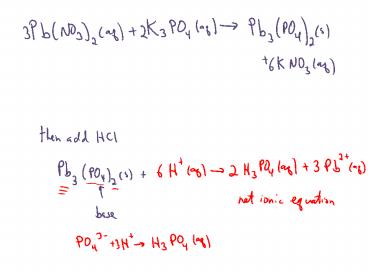 3Pb(NO₃)₂(aq) + 2K₃PO₄(aq) → Pb₃(PO₄)₂(s)
+ 6KNO₃(aq)
then add HCl
Pb₃(PO₄)₂(s) + 6H⁺(aq) → 2H₃PO₄(aq) + 3Pb²⁺(aq)
↑
base
net ionic equation
PO₄³⁻ + 3H⁺ → H₃PO₄(aq)